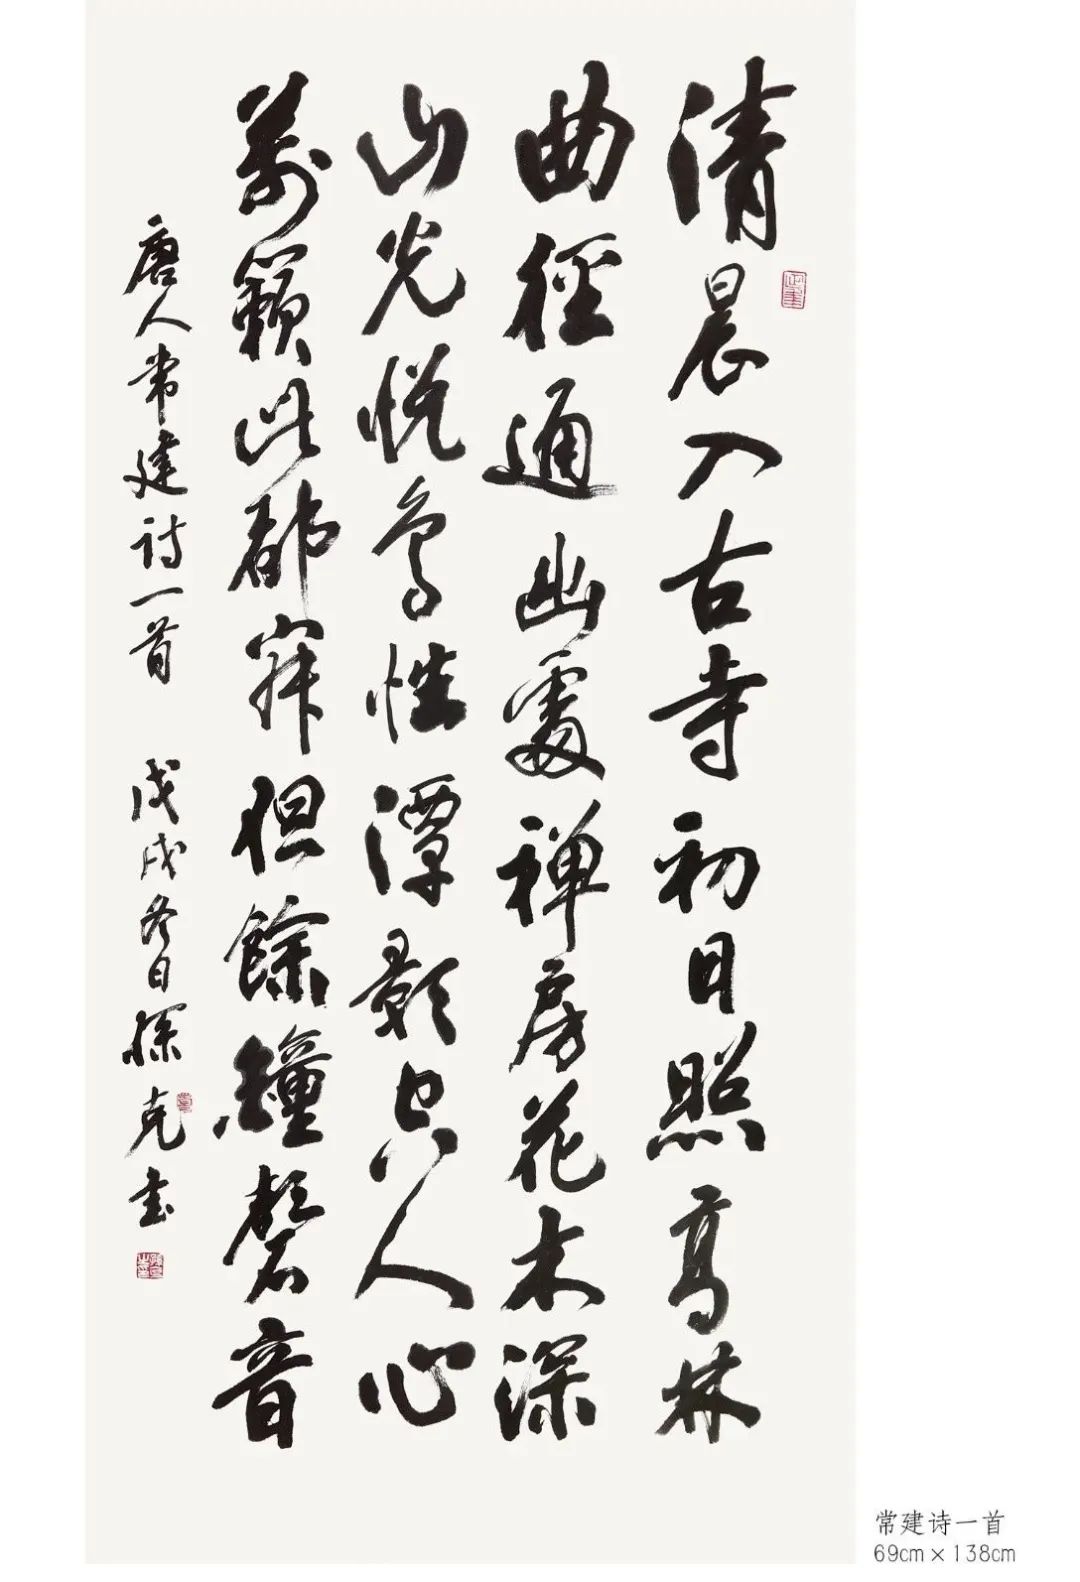 清晨入古寺初日照高林
曲徑通幽處禅房花木深
山光悦鸟性潭影空人心
萬籟此都寂但餘鐘磬音
唐人常建诗一首 戊戌冬日孫克书
常建诗一首
69cm×138cm